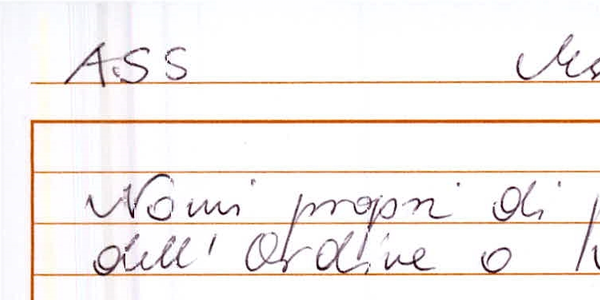 ASS
Nomi propri di
dell' Ordine o